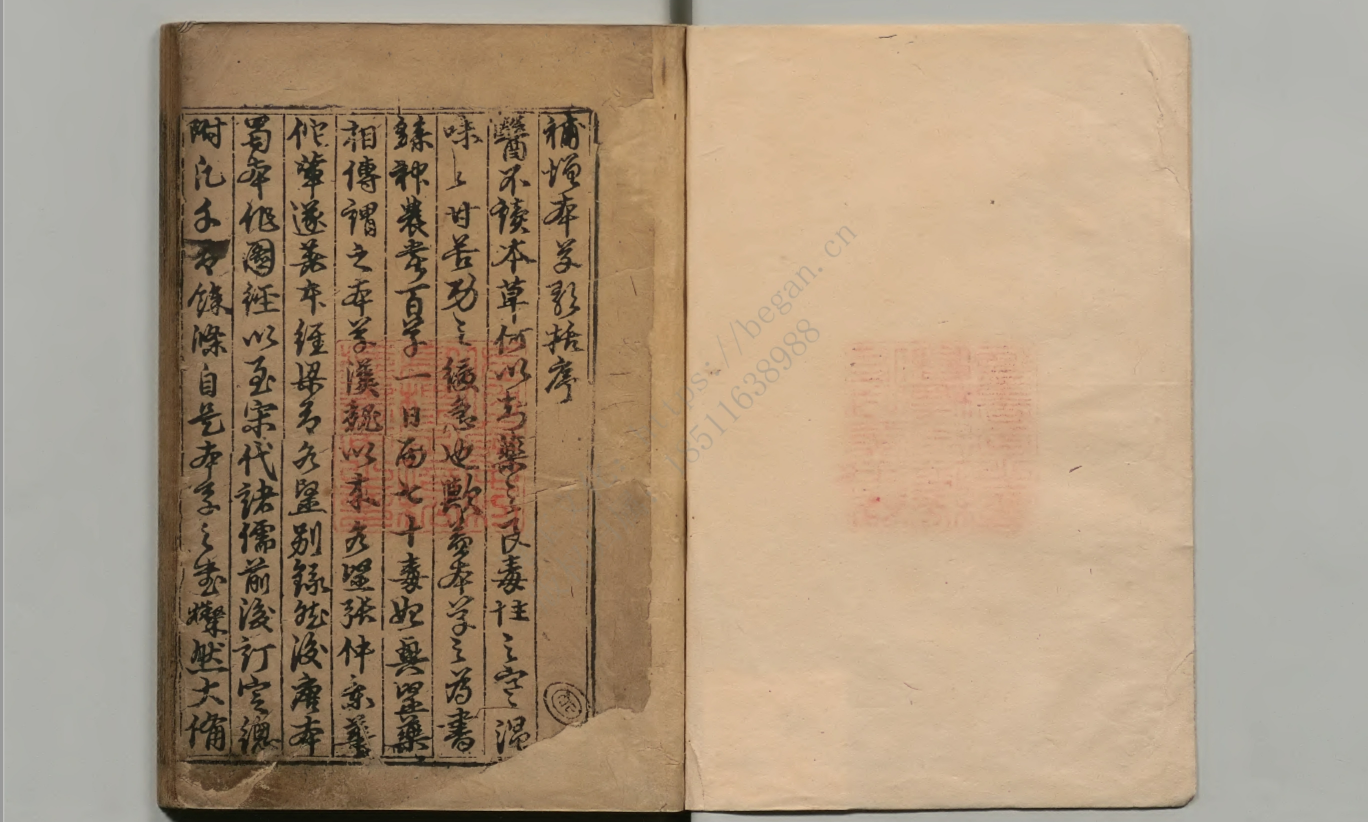 補增本草歌括序
醫不讀本草何以知藥之良毒性之寒溫
味之甘苦功之緩急也歟益本草之為書
繇神農嘗百草一日而七十毒始興毉藥
相傳謂之本草漢魏以來名毉張仲景華
佗輩遂著本經梁為名毉別錄然後唐本
蜀本作圖經以至宋代諸儒前後訂定總
附凡千 餘條自是本草之書燦然大備
https://began.cn
13511638988